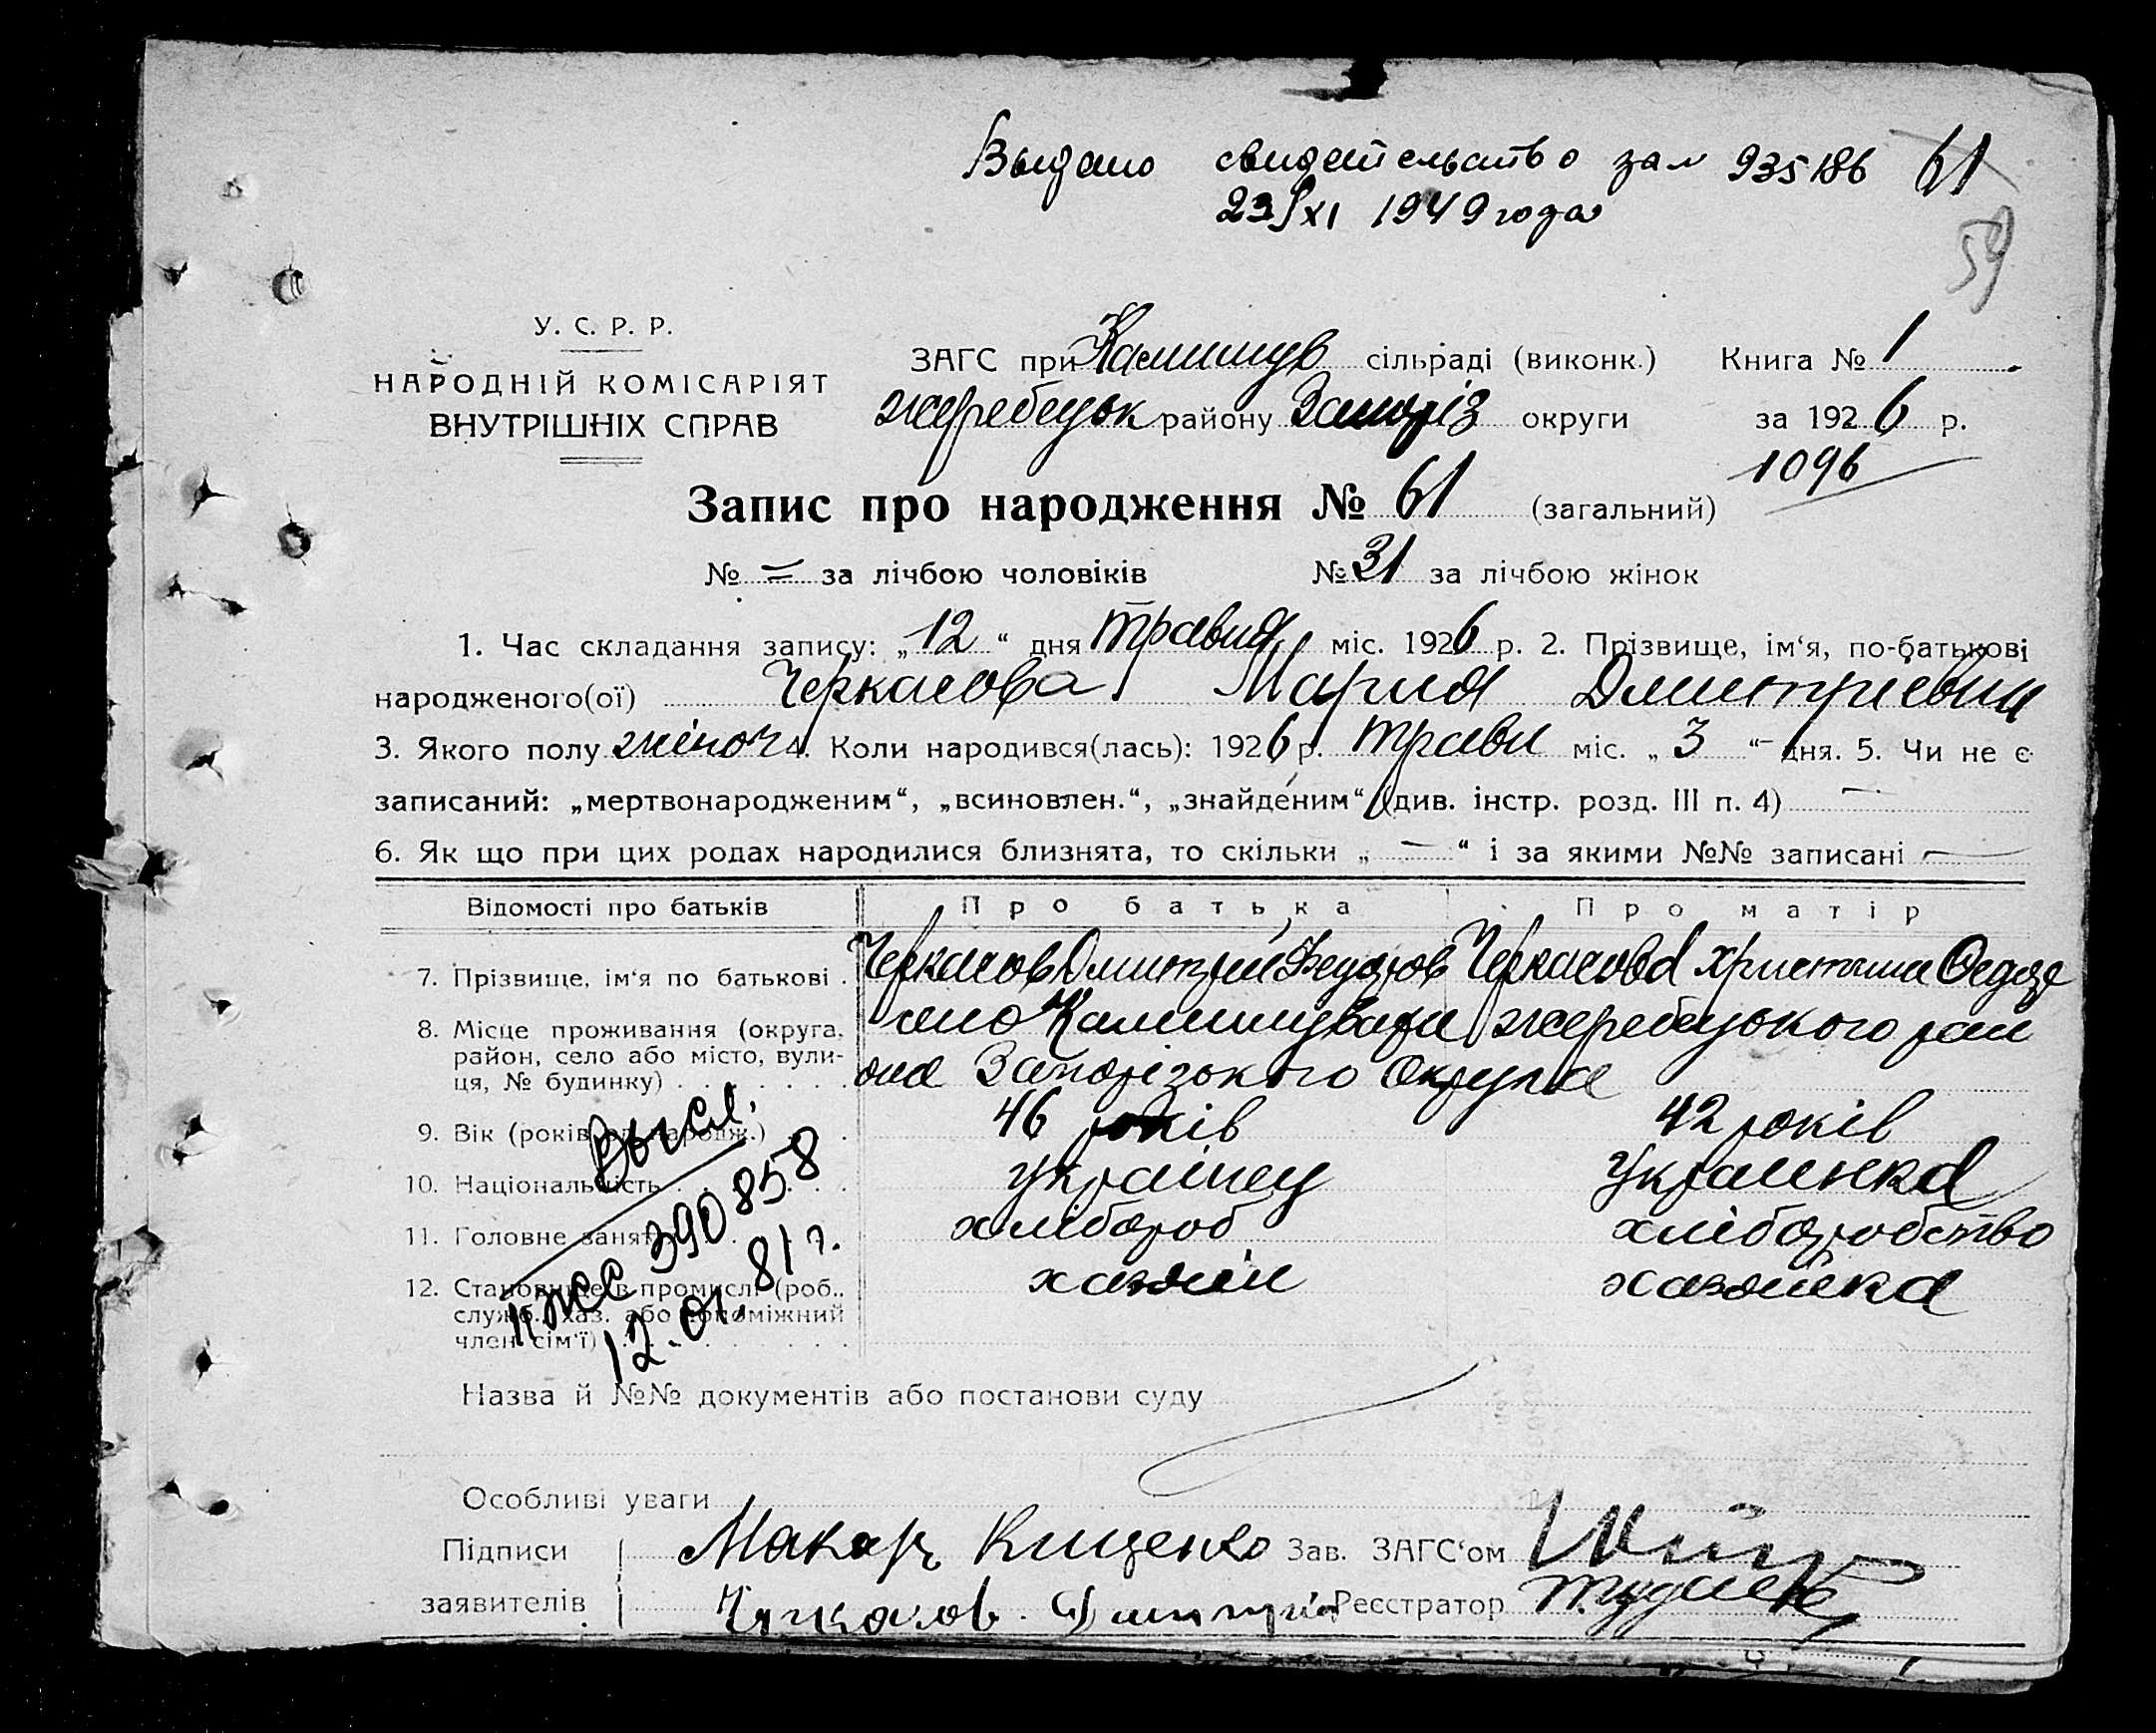 Выдано свидетельство за № 935186 61
23/XI 1949 года
59
У. С. Р. Р.
НАРОДНІЙ КОМІСАРІЯТ
ВНУТРІШНІХ СПРАВ
ЗАГС при Камишув сільраді (виконк.) Книга № 1
жеребецьк району Запоріз округи за 1926 р.
1096
Запис про народження № 61 (загальний)
№ = за лічбою чоловіків № 31 за лічбою жінок
1. Час складання запису: „12“ дня травня міс. 1926 р. 2. Прізвище, ім‘я, по-батькові
народженого(ої) Черкасова Мария Дмитриевна
3. Якого полу жіноч 4. Коли народився(лась): 1926 р. травн міс. „3“ дня. 5. Чи не є
записаний: „мертвонародженим“, „всиновлен.“, „знайденим“ (див. інстр. розд. III п. 4) —
6. Як що при цих родах народилися близнята, то скільки „—“ і за якими №№ записані —
Відомості про батьків Про батька Про матір
7. Прізвище, ім‘я по батькові . Черкасов Дмитрий Федоров Черкасова Христина
8. Місце проживання (округа, район, село або місто, вулиця, № будинку) . . . . . . .
Камишуваха жеребецького рай
она Запорізького Округа
9. Вік (років від народж.) . . 46 років 42 років
10. Національність . . . . . українец Украинка
11. Головне занят. . . . хлібороб хліборобство
12. Становище в промислі (роб., служб., хаз. або допоміжний член сім‘ї) . . . . . . . хазяін хазяйка
390858
12.01.81 г.
Назва й №№ документів або постанови суду
Особливі уваги
Підписи заявителів
Макар Кищенко Зав. ЗАГС‘ом
Черкасов Дмитрий Реєстратор